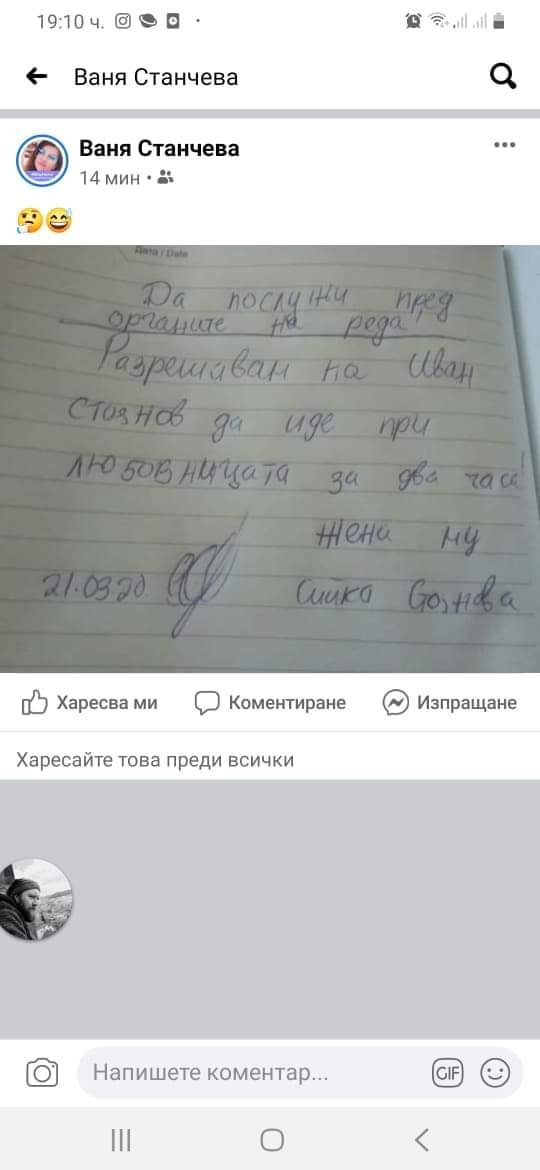 19:10 ч.
Ваня Станчева
Ваня Станчева
14 мин
Дата / Date
Да послужи пред
органите на реда!
Разрешавам на Иван
Стоянов да иде при
любовницата за два часа!
жена му
21.03.20 Сийка Соянова
Харесва ми Коментиране Изпращане
Харесайте това преди всички
Напишете коментар... GIF